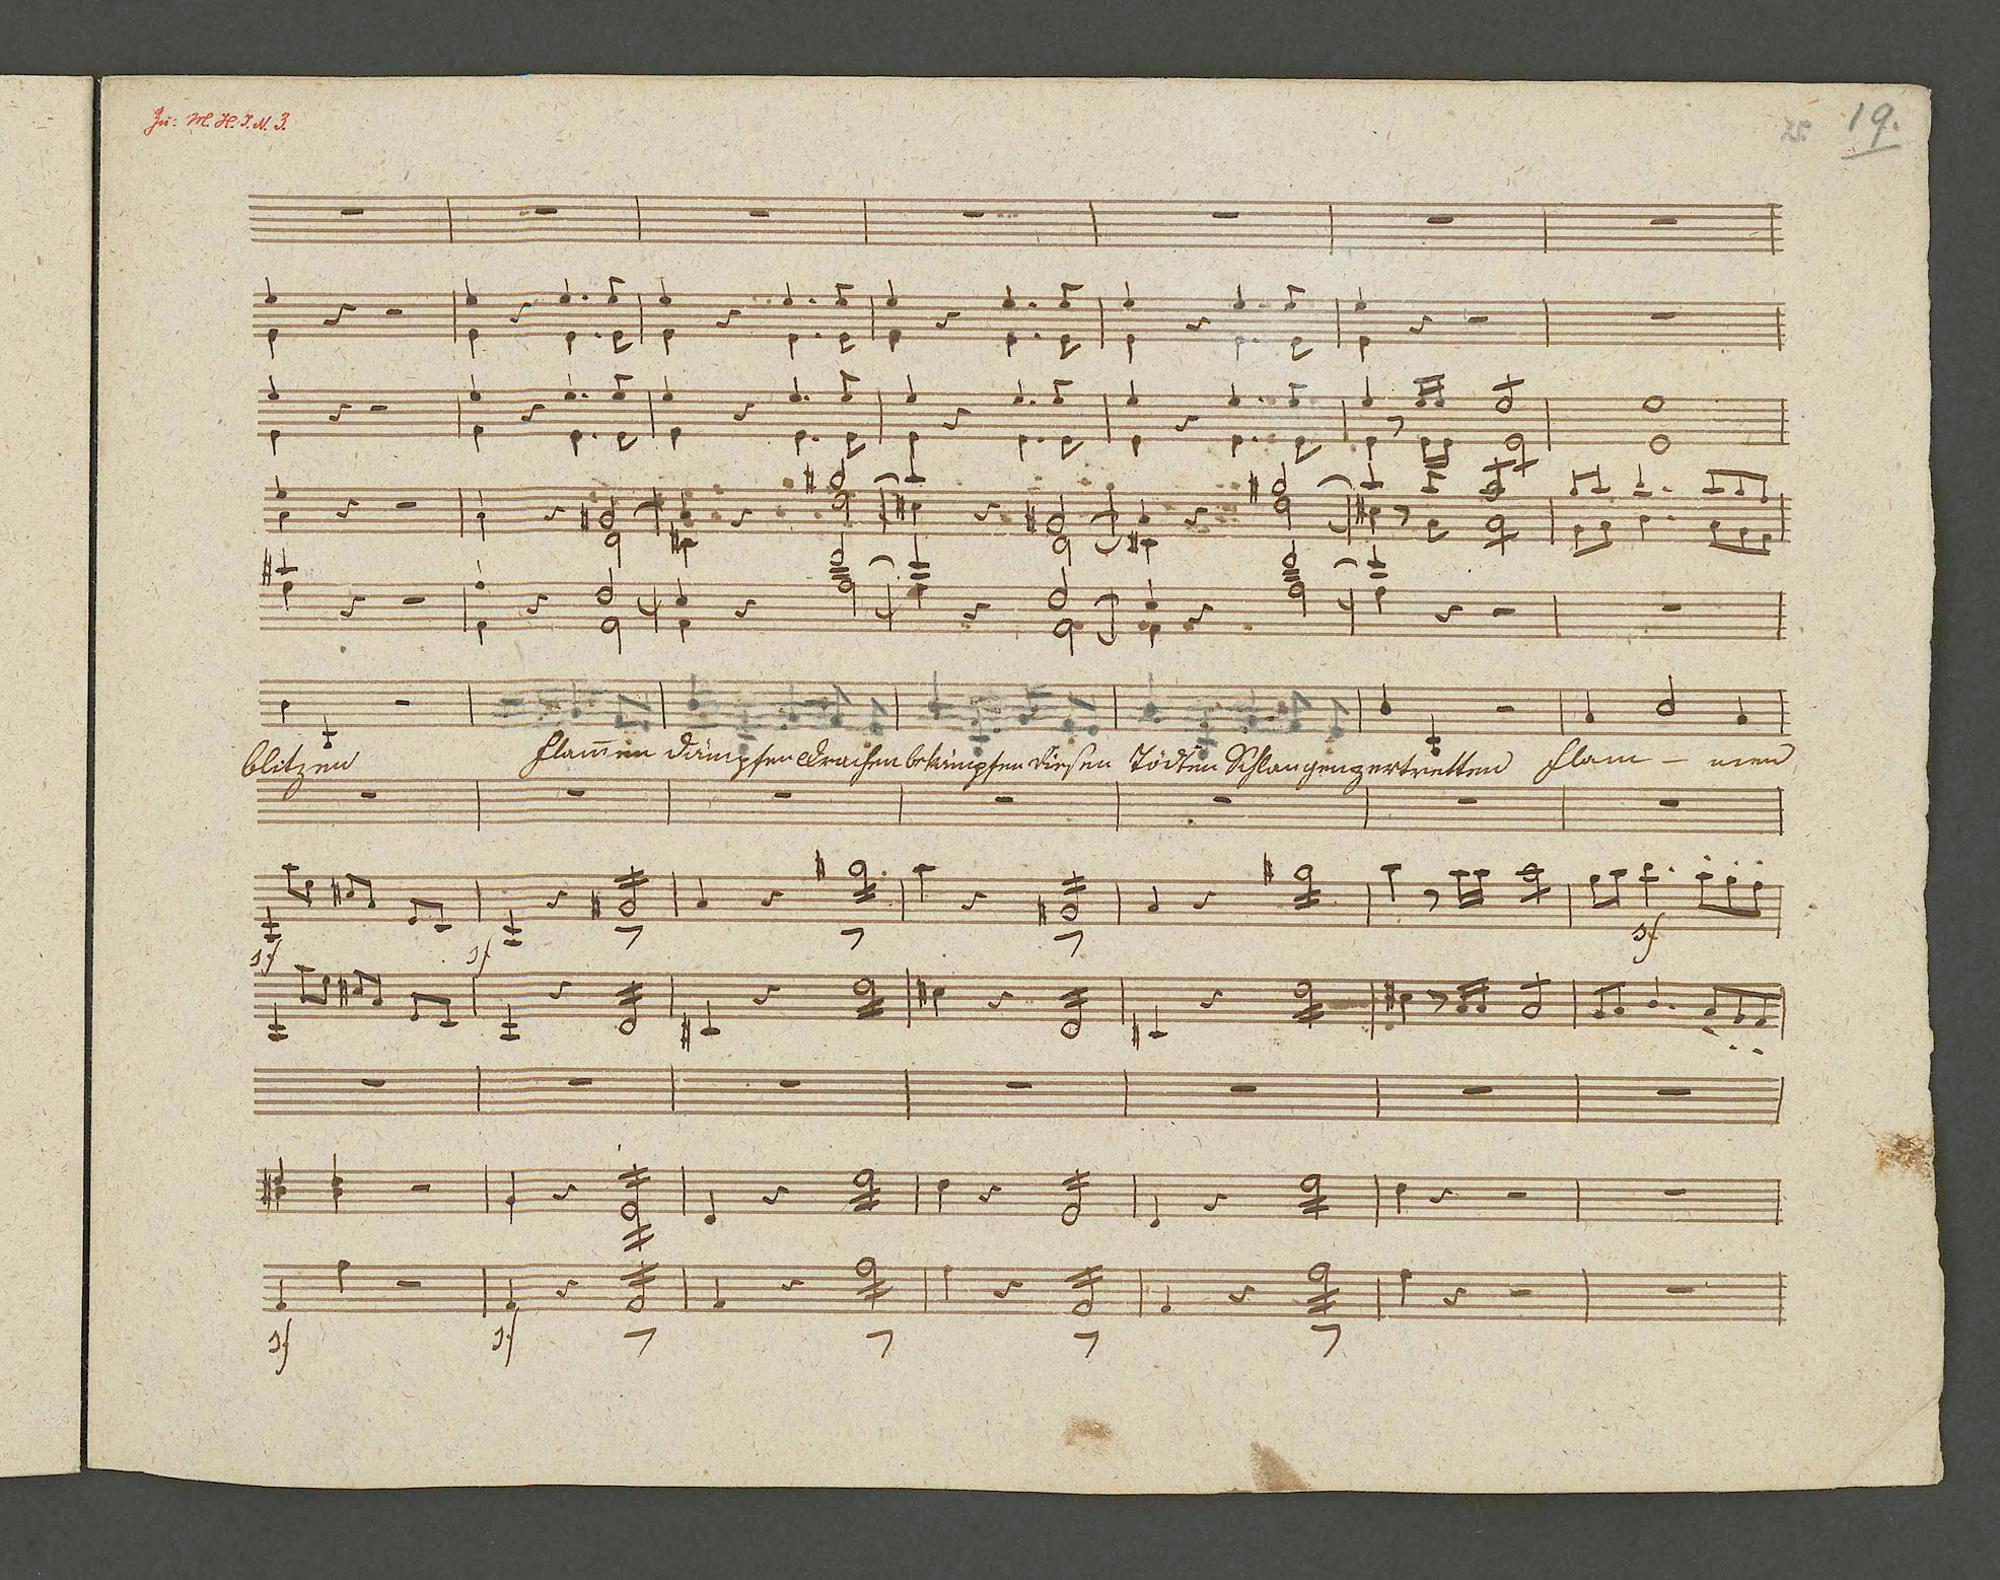 Zu: M. H. I. N. 3.
25. 19.
blitzen flam̅en dämpfen Drachen bekämpfen Riesen Tödten Schlangen zertretten flam - men
sf sf sf
sf sf